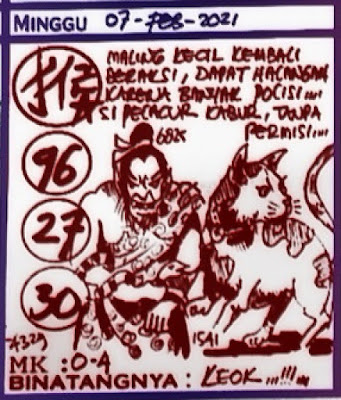 MINGGU 07-FEB-2021
MALING KECIL KEMBALI
BERAKSI, DAPAT HALANGAN
KARENA BANYAK POLISI....
SI PELACUR KABUR, TANPA
PERMISI....
6825
96
27
30
1541
4329
MK : 0-4
BINATANGNYA : KEOK...!!!...